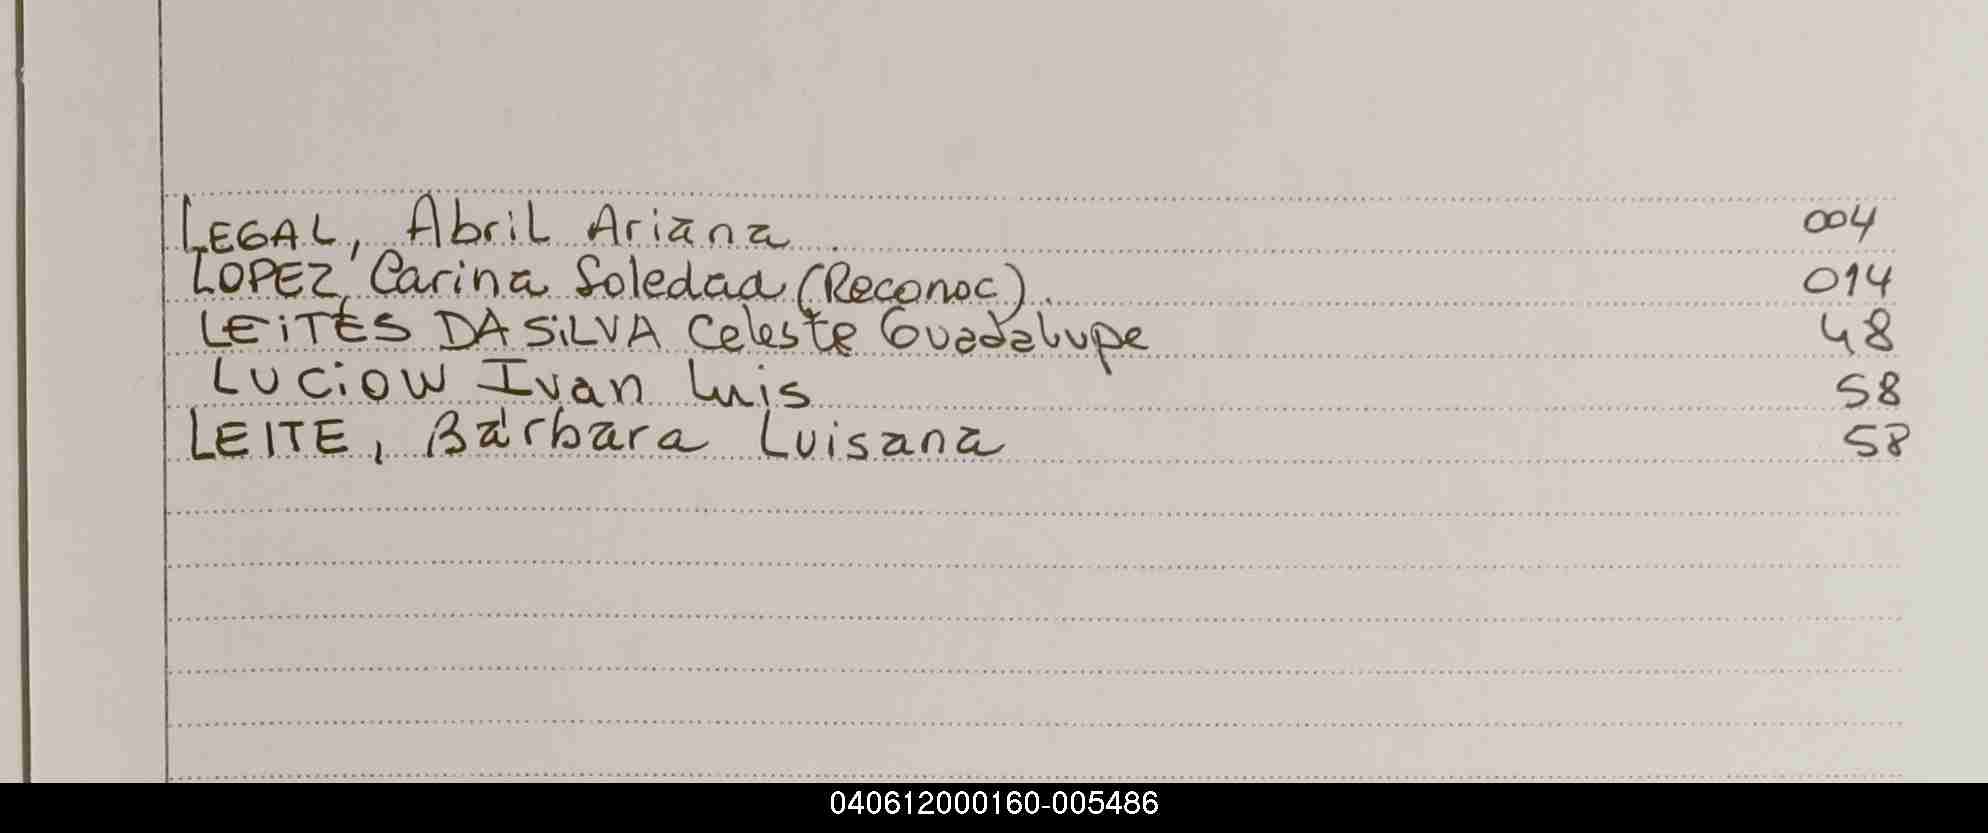 LEGAL, Abril Ariana 004
LOPEZ, Carina Soledad (Reconoc). 014
LEiTES DA SiLVA Celeste Guadalupe 48
LUCiOW Ivan Luis 58
LEITE, Bárbara Luisana 58
040612000160-005486